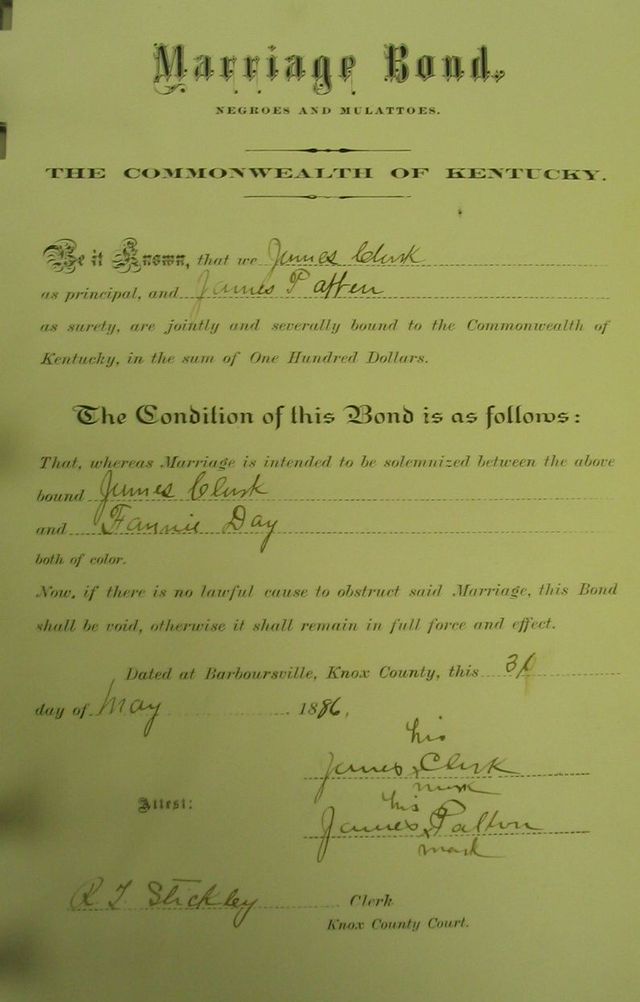 Marriage Bond,
NEGROES AND MULATTOES.
THE COMMONWEALTH OF KENTUCKY.
Be it Known, that we James Clerk
as principal, and James Patten
as surety, are jointly and severally bound to the Commonwealth of
Kentucky, in the sum of One Hundred Dollars.
The Condition of this Bond is as follows:
That, whereas Marriage is intended to be solemnized between the above
bound James Clerk
and Fannie Day
both of color.
Now, if there is no lawful cause to obstruct said Marriage, this Bond
shall be void, otherwise it shall remain in full force and effect.
Dated at Barboursville, Knox County, this
day of May 1886,
his
James x Clerk
mark
Attest:
his
James x Patton
mark
R T Stickley Clerk
Knox County Court.